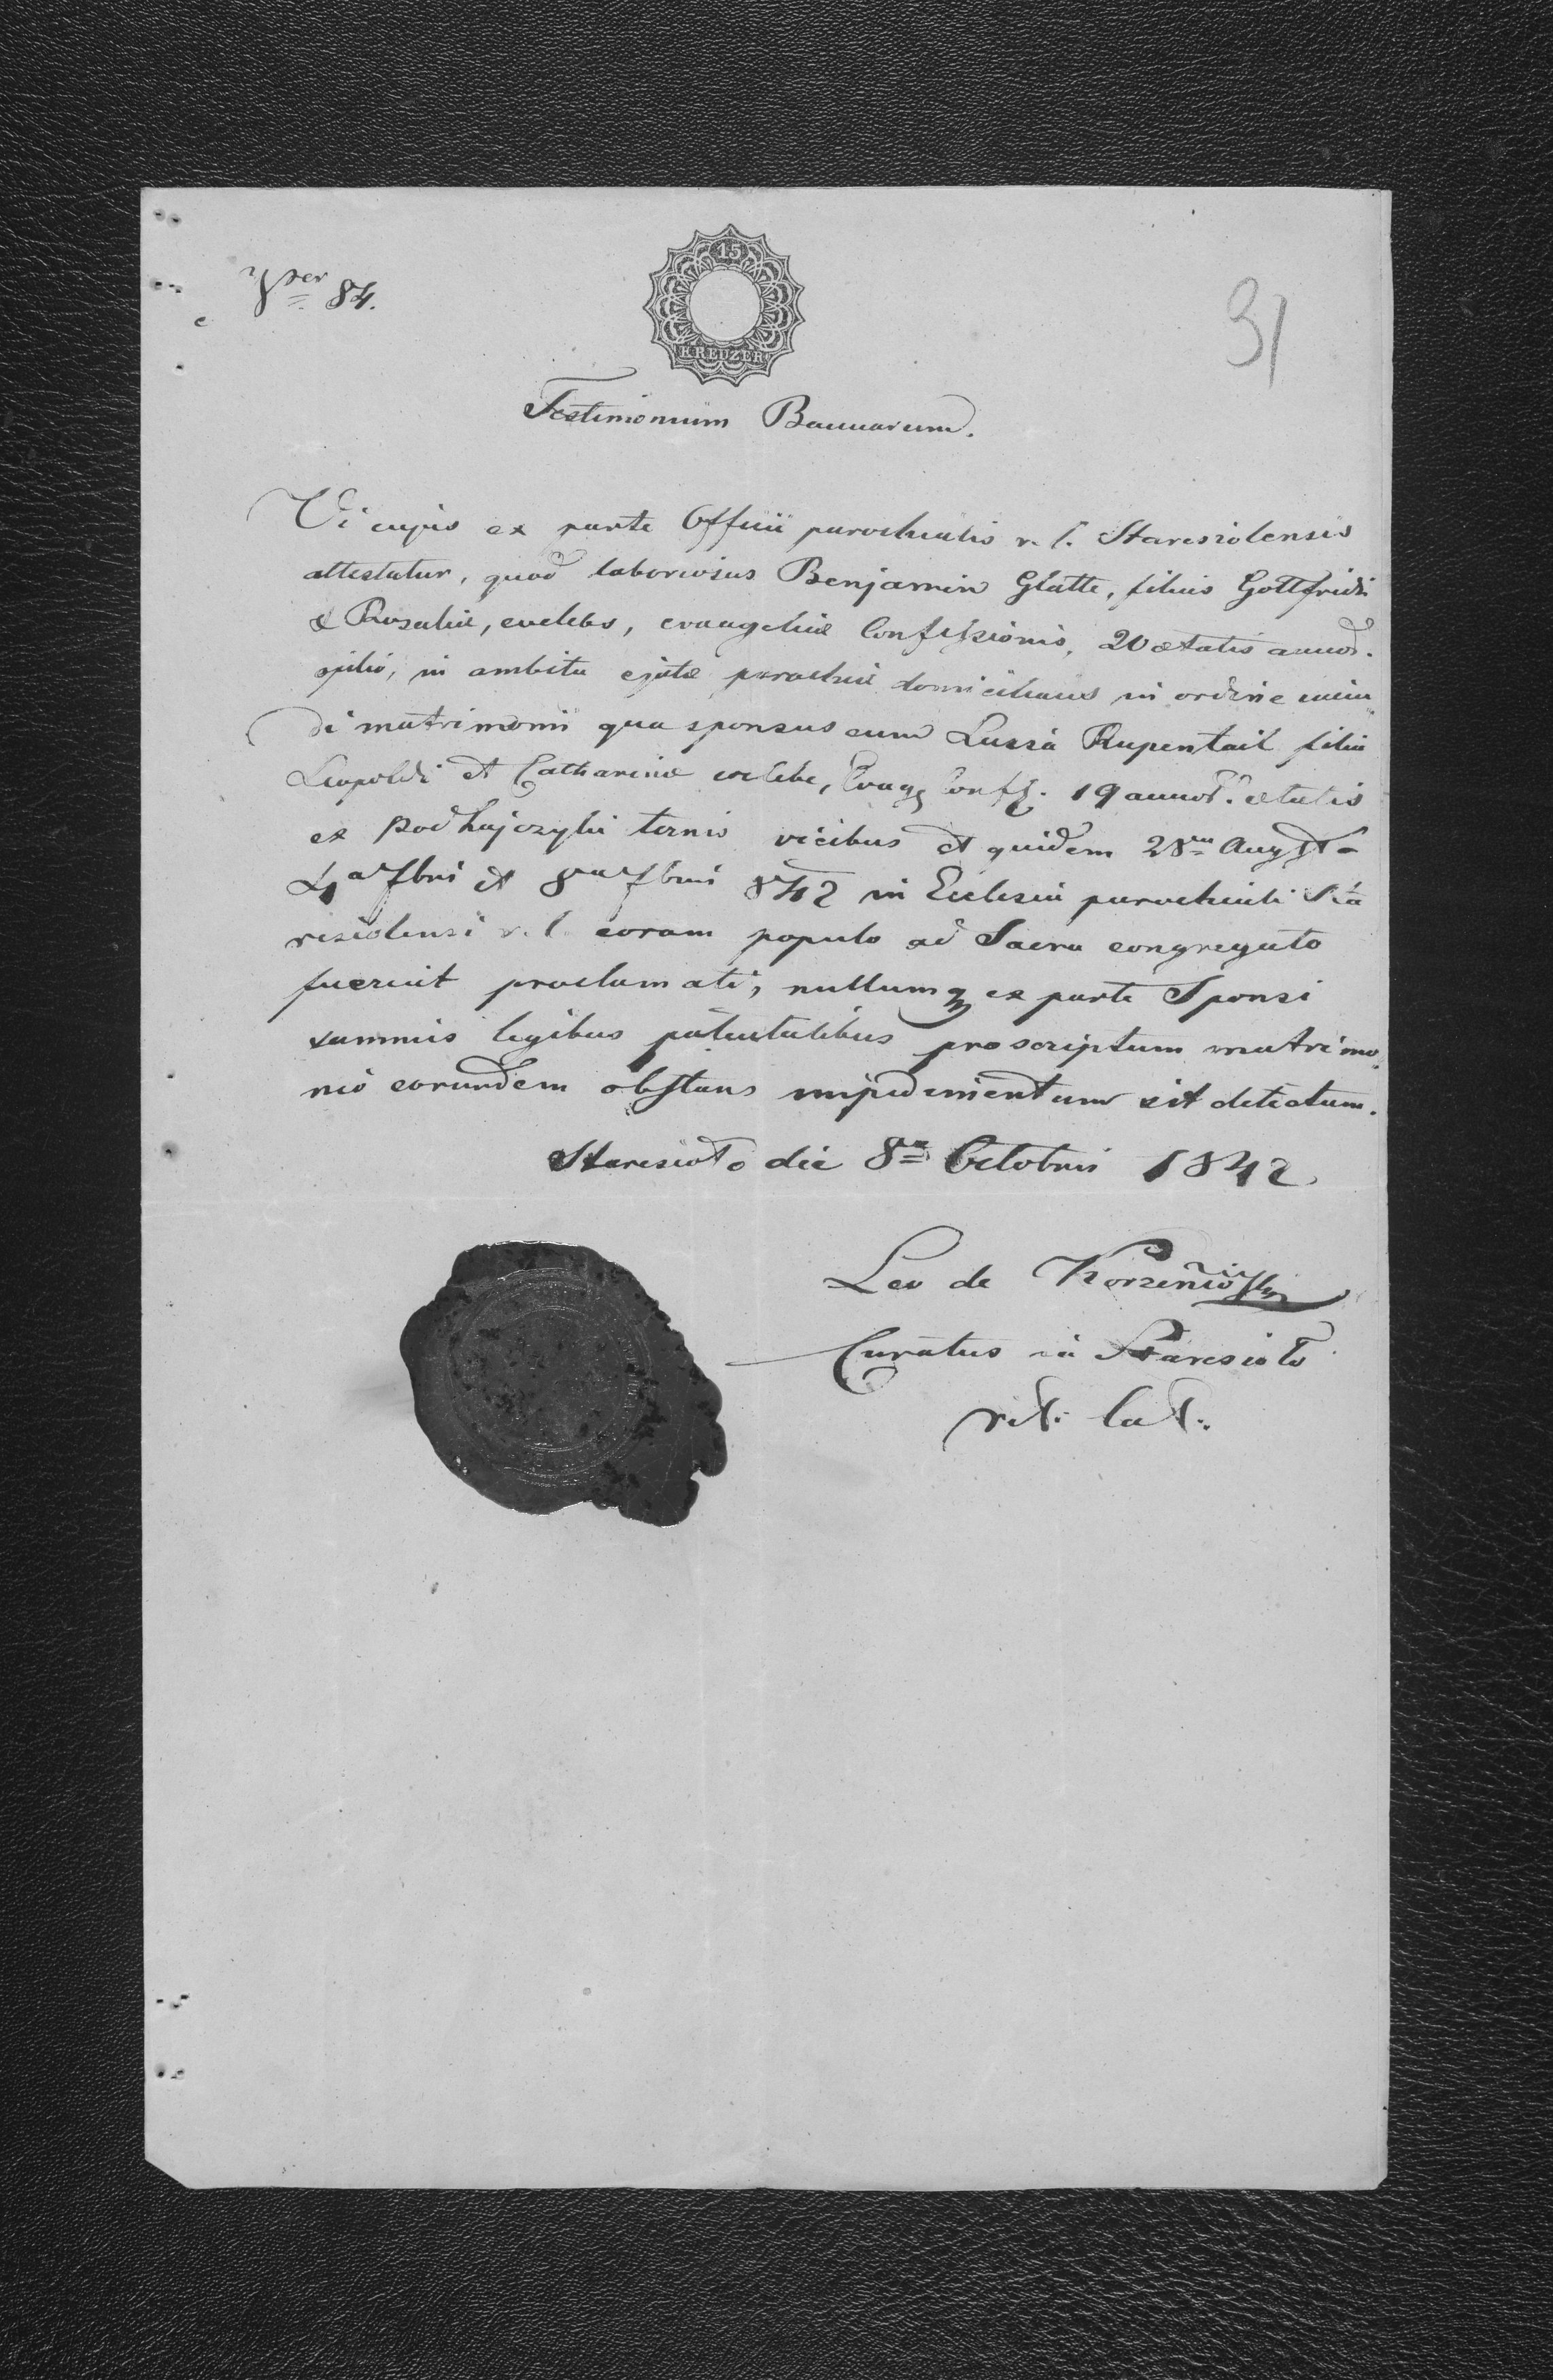 84.
15
KREUZER
31
Testimonium Bannorum.
Vi cujus ex parte Officii parochialis r. l. Staresiolensis
attestatur, quod laboriosus Benjamin Glatte, filius Gottfridi
& Rosaliæ, cælebs, evangeliæ Confessionis, 20 ætatis annor.
in ambitu ejatæ parochiæ domicilians in ordine ineun
di matrimonii qua sponsus cum Lussia Rupentail filia
Leopoldi et Catharinæ cælebe, Evang Conf. 19 annor. ætatis
ex Podhajczyki ternis vicibus et quidem 28va Augusta
4a 7bris et 8va 7bris 842 in Eclesia parochiali Sta
resiolensi r. l. coram populo ad Sacra congregato
fuerint proclamati, nullumq ex parte Sponsi
legibus proscriptum matrimo
nio eorundem obstans impedimentum sit detectum.
Staresioło die 8va Octobris 1842
Leo de Korzeniowski
Curatus in Staresioło
rit. lat.